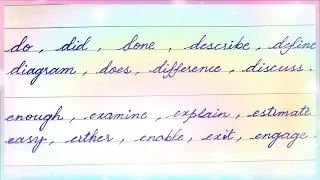 do , did , done , describe , define
diagram , does , difference , discuss .
enough , examine , explain , estimate
easy , either , enable , exit , engage .